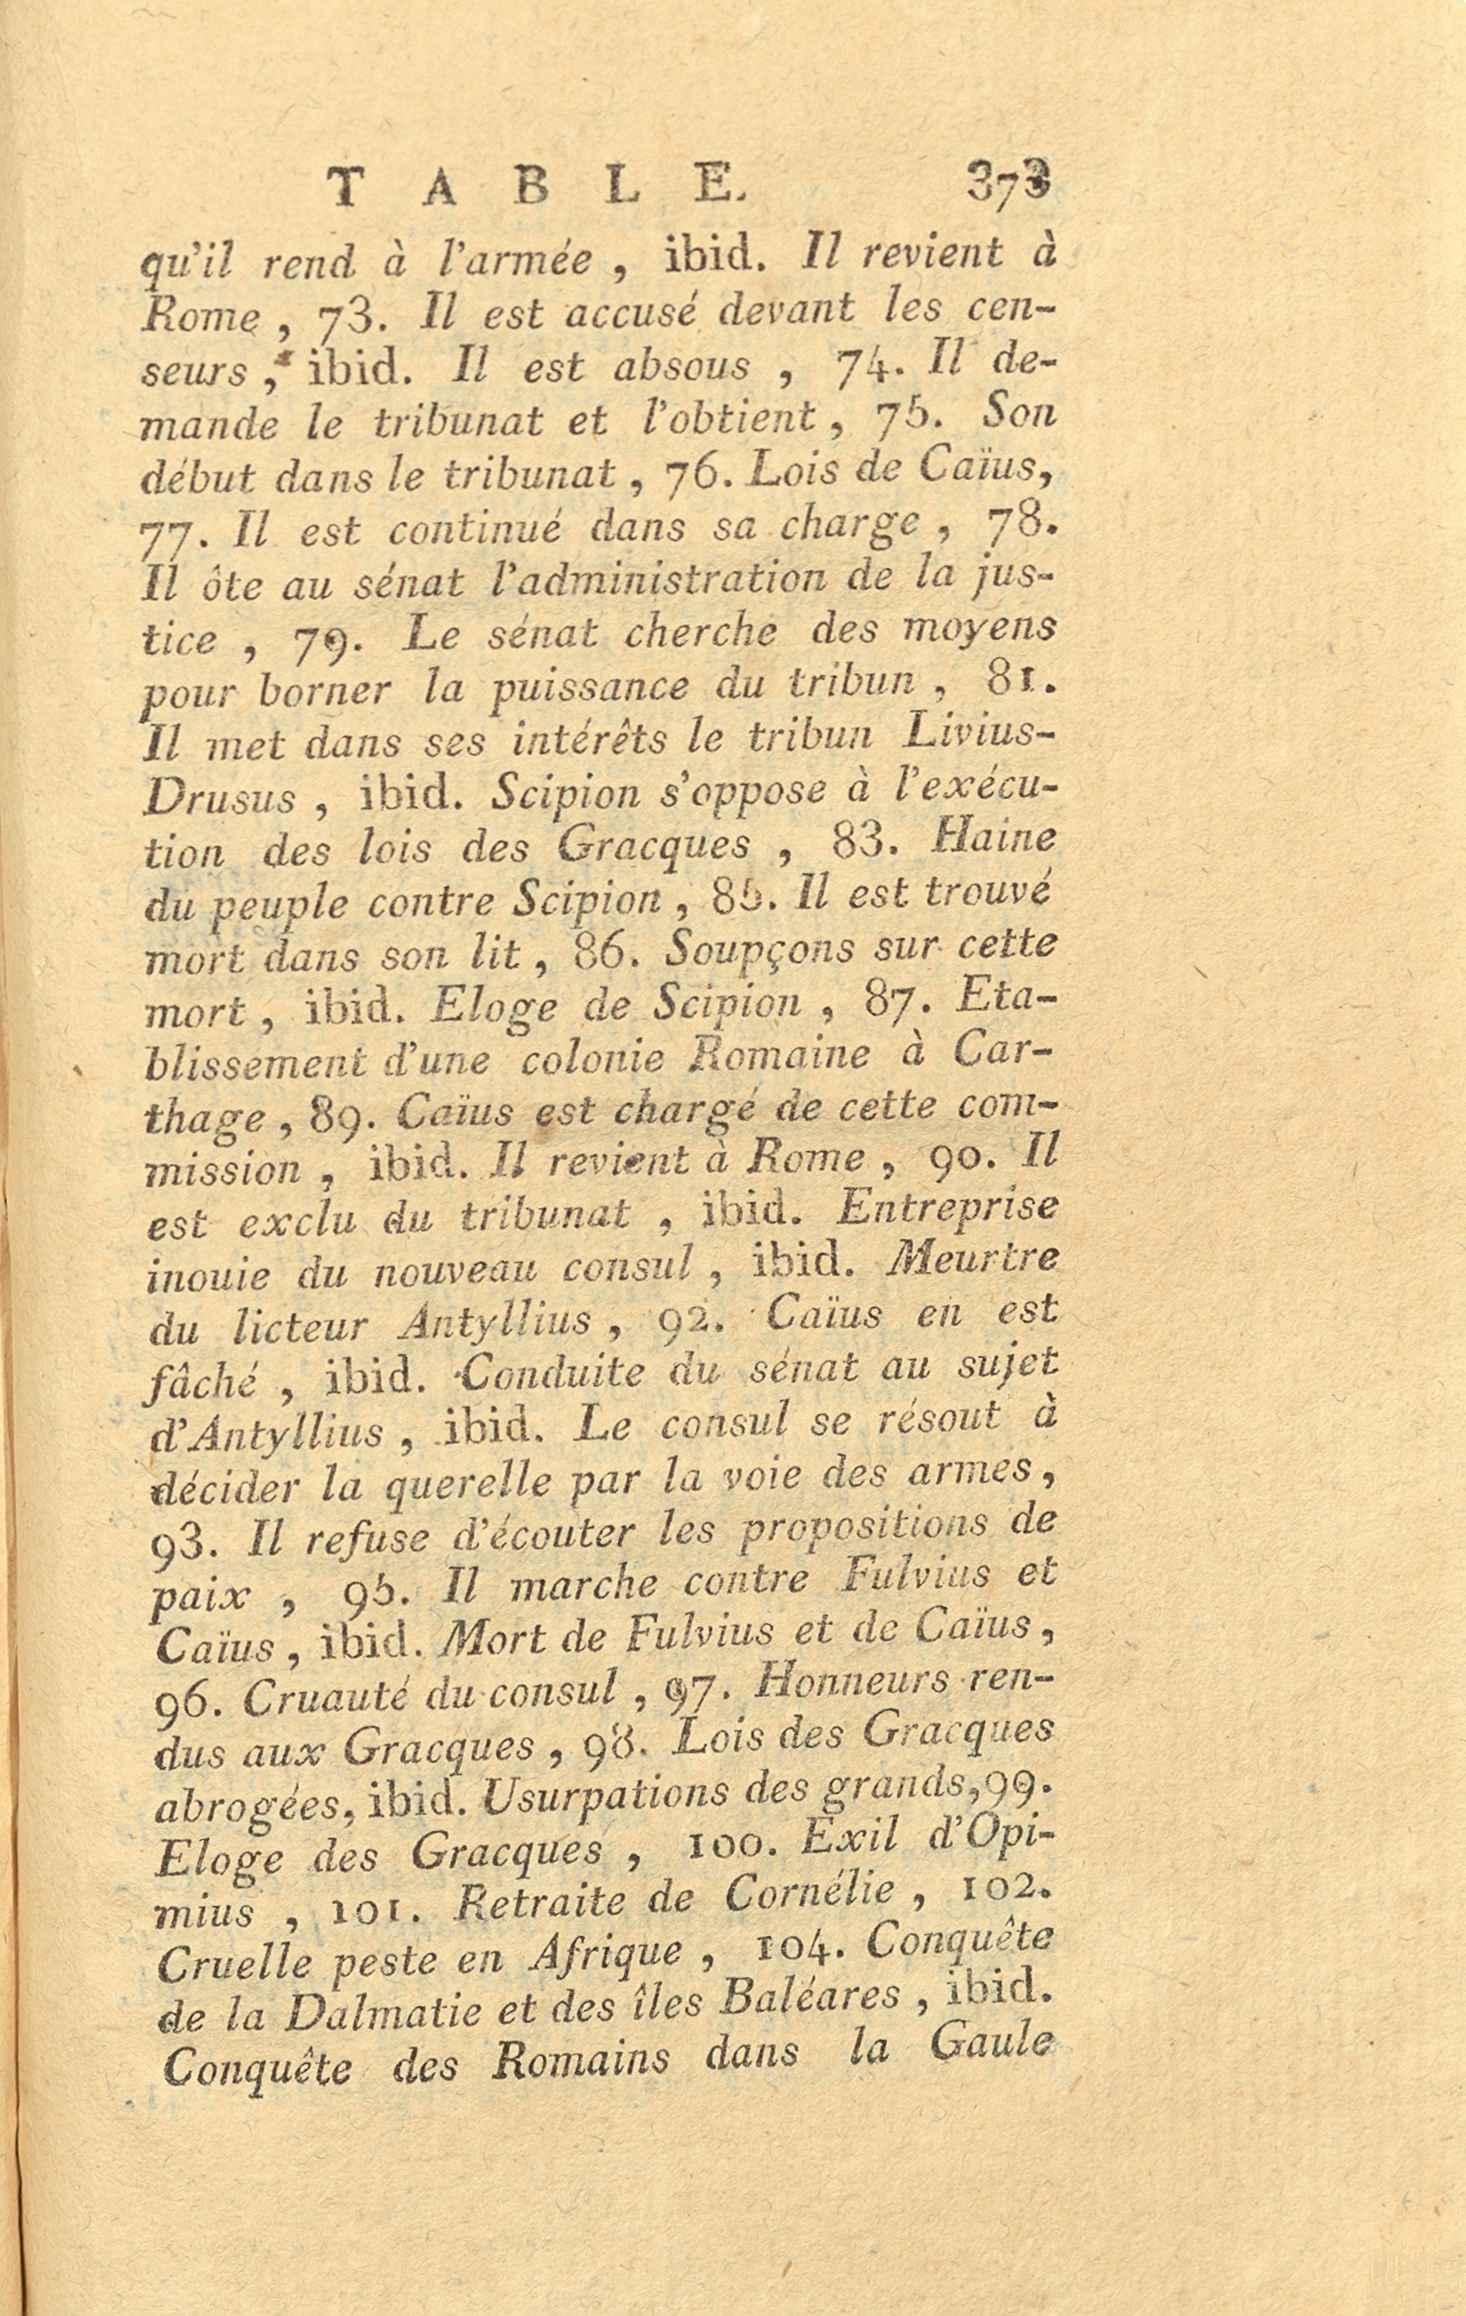 TABLE. 373
qu'il rend à l'armée, ibid. Il revient à
Rome, 73. Il est accusé devant les cen-
seurs, ibid. Il est absous, 74. Il de-
mande le tribunat et l'obtient, 75. Son
début dans le tribunat, 76. Lois de Caïus,
77. Il est continué dans sa charge, 78.
Il ôte au sénat l'administration de la jus-
tice, 79. Le sénat cherche des moyens
pour borner la puissance du tribun, 81.
Il met dans ses intérêts le tribun Livius-
Drusus, ibid. Scipion s'oppose à l'exécu-
tion des lois des Gracques, 83. Haine
du peuple contre Scipion, 85. Il est trouvé
mort dans son lit, 86. Soupçons sur cette
mort, ibid. Eloge de Scipion, 87. Eta-
blissement d'une colonie Romaine à Car-
thage, 89. Caïus est chargé de cette com-
mission, ibid. Il revient à Rome, 90. Il
est exclu du tribunat, ibid. Entreprise
inouie du nouveau consul, ibid. Meurtre
du licteur Antyllius, 92. Caïus en est
fâché, ibid. Conduite du sénat au sujet
d'Antyllius, ibid. Le consul se résout à
décider la querelle par la voie des armes,
93. Il refuse d'écouter les propositions de
paix, 95. Il marche contre Fulvius et
Caïus, ibid. Mort de Fulvius et de Caïus,
96. Cruauté du consul, 97. Honneurs ren-
dus aux Gracques, 98. Lois des Gracques
abrogées, ibid. Usurpations des grands, 99.
Eloge des Gracques, 100. Exil d'Opi-
mius, 101. Retraite de Cornélie, 102.
Cruelle peste en Afrique, 104. Conquête
de la Dalmatie et des îles Baléares, ibid.
Conquête des Romains dans la Gaule